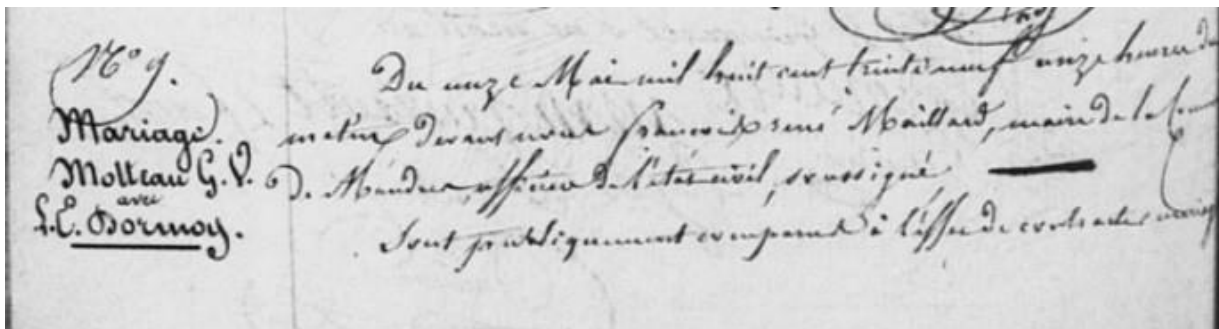 N° 9.
Mariage.
Molteau G. V.
avec
L. E. Dormoy.
Du onze Mai mil huit cent trente neuf onze heures du
matin devant nous françois rené Maillard, maire de la Com
De Mandres officier de l'état civil, soussigné
Sont publiquement comparus à l'effet de contracter mariage